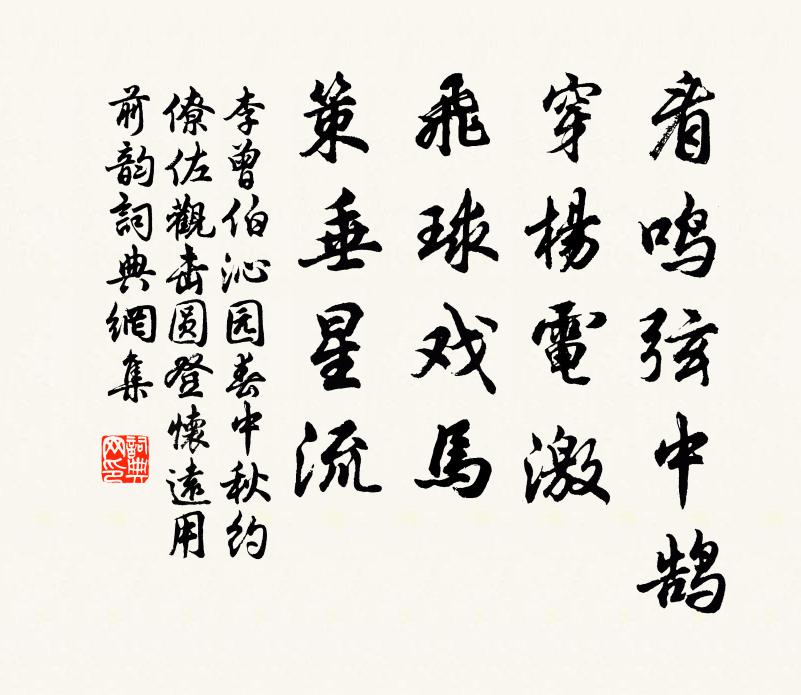 看鸣弦中鹄
穿楊電激
飛球戏馬
策垂星流
李曾伯沁园春中秋约
僚佐觀击圆登懷遠用
前韵詞典網集
詞典网印